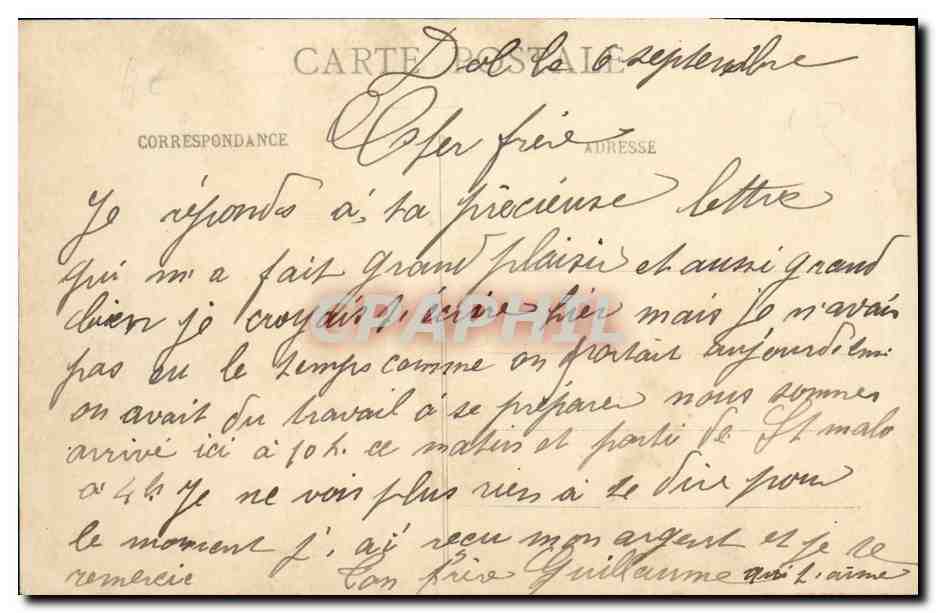 CARTE POSTALE
Dol le 6 septembre
CORRESPONDANCE
Cher frère
ADRESSE
Je réponds à ta précieuse lettre
qui m'a fait grand plaisir et aussi grand
bien je croyais t'écrire hier mais je n'avais
CPAPHIL
pas eu le temps comme on partait aujourd'hui
on avait du travail à se préparer nous sommes
arrivé ici à 10 h. ce matin et parti de St malo
à 4 h Je ne vois plus rien à te dire pour
le moment j'ai recu mon argent et je te
remercie Ton frère Guillaume qui t'aime